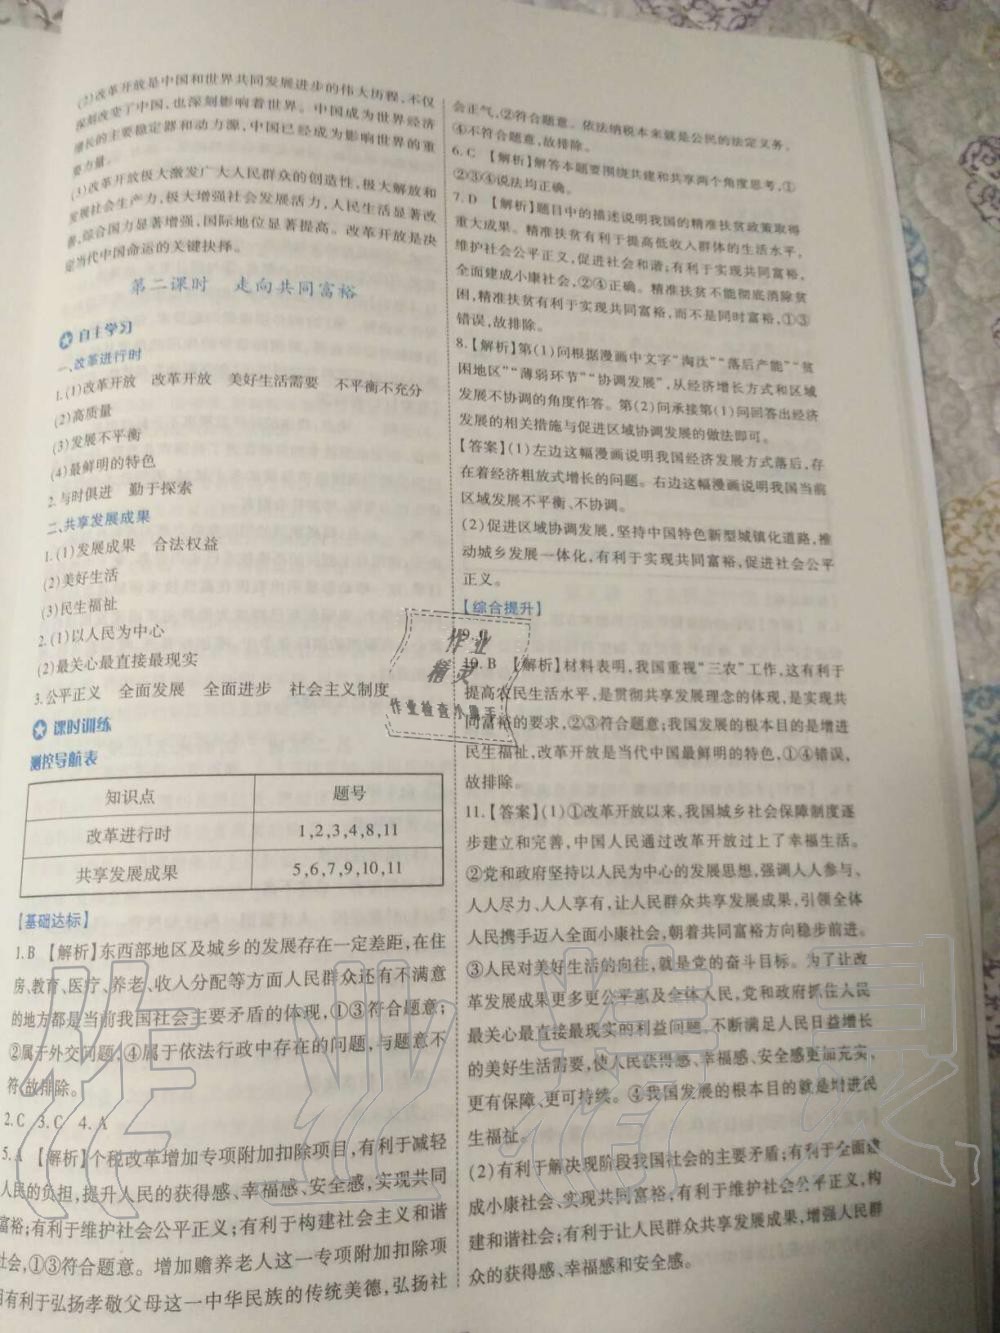 (2)改革开放是中国和世界共同发展进步的伟大历程,不仅
深刻改变了中国,也深刻影响着世界。中国成为世界经济
增长的主要稳定器和动力源,中国已经成为影响世界的重
要力量。
(3)改革开放极大激发广大人民群众的创造性,极大解放和
发展社会生产力,极大增强社会发展活力,人民生活显著改
善,综合国力显著增强,国际地位显著提高。改革开放是决
定当代中国命运的关键抉择。
第二课时 走向共同富裕
自主学习
一、改革进行时
1.(1)改革开放 改革开放 美好生活需要 不平衡不充分
(2)高质量
(3)发展不平衡
(4)最鲜明的特色
2.与时俱进 勤于探索
二、共享发展成果
1.(1)发展成果 合法权益
(2)美好生活
(3)民生福祉
2.(1)以人民为中心
(2)最关心最直接最现实
3.公平正义 全面发展 全面进步 社会主义制度
课时训练
测控导航表
知识点 题号
改革进行时 1,2,3,4,8,11
共享发展成果 5,6,7,9,10,11
【基础达标】
1.B 【解析】东西部地区及城乡的发展存在一定差距,在住
房、教育、医疗、养老、收入分配等方面人民群众还有不满意
的地方都是当前我国社会主要矛盾的体现,①③符合题意;
②属于外交问题,④属于依法行政中存在的问题,与题意不
符,故排除。
2.C 3.C 4.A
5.A 【解析】个税改革增加专项附加扣除项目,有利于减轻
人民的负担,提升人民的获得感、幸福感、安全感,实现共同
富裕;有利于维护社会公平正义;有利于构建社会主义和谐
社会,①③符合题意。增加赡养老人这一专项附加扣除项
目有利于弘扬孝敬父母这一中华民族的传统美德,弘扬社
会正气,②符合题意。依法纳税本来就是公民的法定义务。
④不符合题意,故排除。
6.C 【解析】解答本题要围绕共建和共享两个角度思考,①
②③④说法均正确。
7.D 【解析】题目中的描述说明我国的精准扶贫政策取得
重大成果。精准扶贫有利于提高低收入群体的生活水平,
维护社会公平正义,促进社会和谐;有利于实现共同富裕,
全面建成小康社会,②④正确。精准扶贫不能彻底消除贫
困,精准扶贫有利于实现共同富裕,而不是同时富裕,①③
错误,故排除。
8.【解析】第(1)问根据漫画中文字“淘汰”“落后产能”“贫
困地区”“薄弱环节”“协调发展”,从经济增长方式和区域
发展不协调的角度作答。第(2)问承接第(1)问回答出经济
发展的相关措施与促进区域协调发展的做法即可。
【答案】(1)左边这幅漫画说明我国经济发展方式落后,存
在着经济粗放式增长的问题。右边这幅漫画说明我国当前
区域发展不平衡、不协调。
(2)促进区域协调发展,坚持中国特色新型城镇化道路,推
动城乡发展一体化,有利于实现共同富裕,促进社会公平
正义。
【综合提升】
10.B 【解析】材料表明,我国重视“三农”工作,这有利于
提高农民生活水平,是贯彻共享发展理念的体现,是实现共
同富裕的要求,②③符合题意;我国发展的根本目的是增进
民生福祉,改革开放是当代中国最鲜明的特色,①④错误,
故排除。
11.【答案】(1)①改革开放以来,我国城乡社会保障制度逐
步建立和完善,中国人民通过改革开放过上了幸福生活。
②党和政府坚持以人民为中心的发展思想,强调人人参与、
人人尽力、人人享有,让人民群众共享发展成果,引领全体
人民携手迈入全面小康社会,朝着共同富裕方向稳步前进。
③人民对美好生活的向往,就是党的奋斗目标。为了让改
革发展成果更多更公平惠及全体人民,党和政府抓住人民
最关心最直接最现实的利益问题,不断满足人民日益增长
的美好生活需要,使人民获得感、幸福感、安全感更加充实、
更有保障、更可持续。④我国发展的根本目的就是增进民
生福祉。
(2)有利于解决现阶段我国社会的主要矛盾;有利于全面建
成小康社会,实现共同富裕;有利于维护社会公平正义,构
建和谐社会;有利于让人民群众共享发展成果,增强人民群
众的获得感、幸福感和安全感。
作业
精灵
作业检查小助手
作业精灵